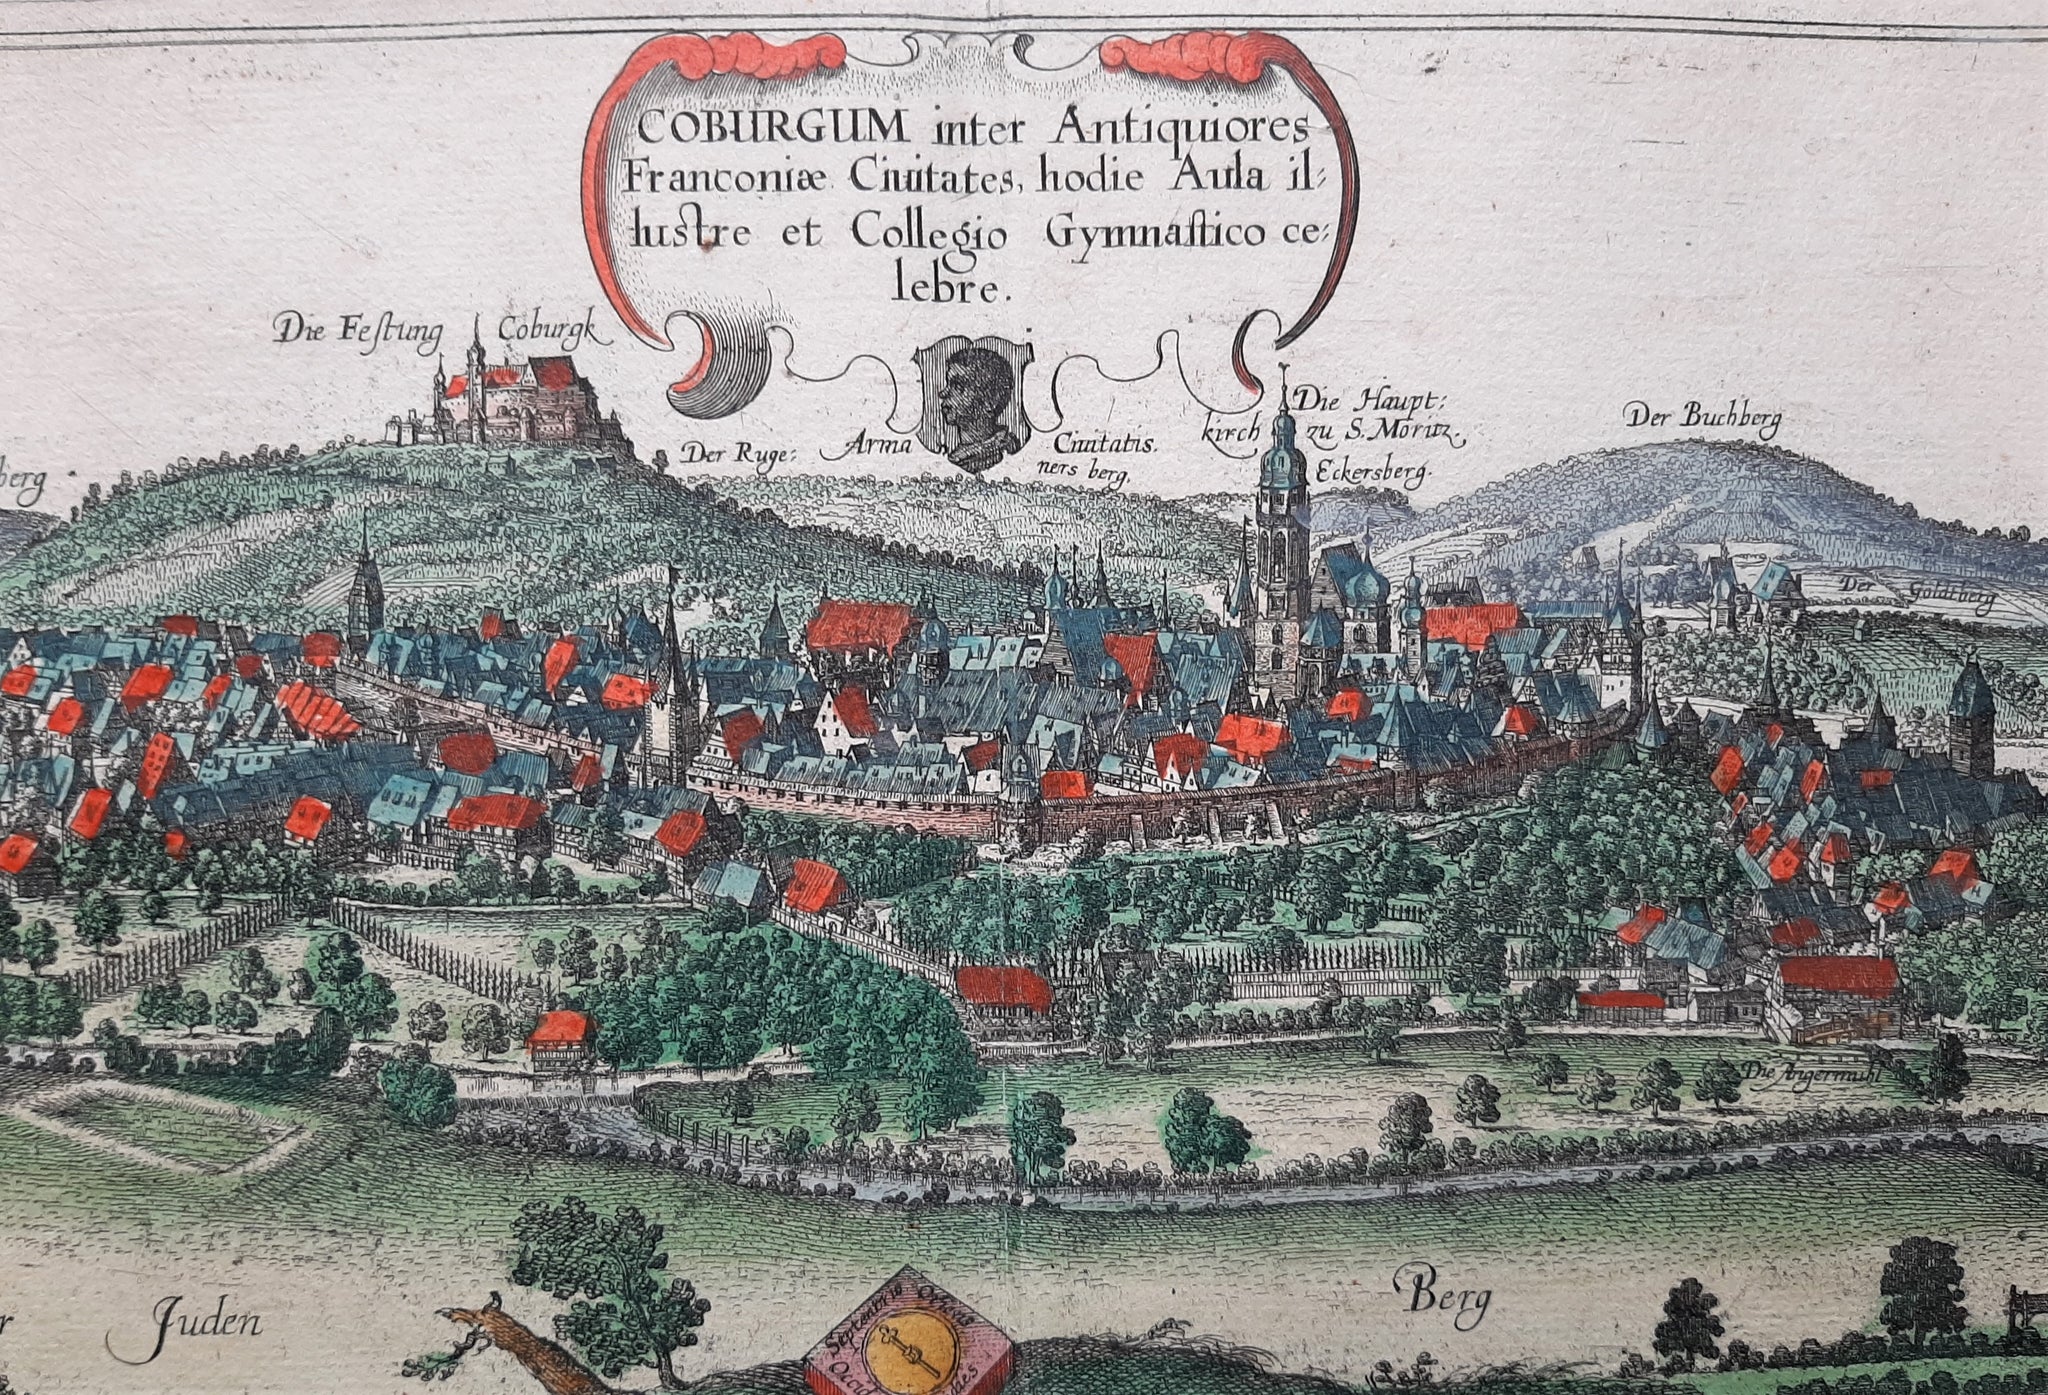 COBURGUM inter Antiquiores
Franconiæ Ciuitates, hodie Aula il:
lustre et Collegio Gymnastico ce:
lebre.
Die Festung Coburgk
Die Haupt:
kirch zu S. Moritz.
Der Buchberg
berg
Der Ruge:
ners berg.
Arma Ciuitatis.
Eckersberg.
Der Goldtberg
Die Angermuhl
Juden
Berg
Septentrio
Oriens